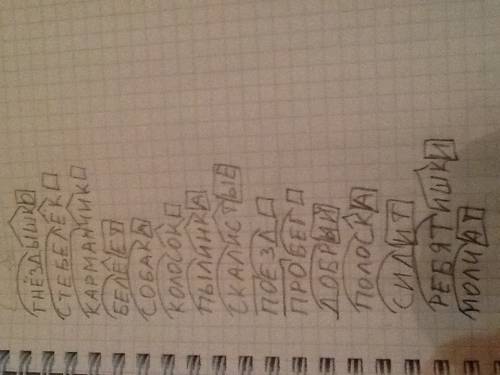 ГНЁЗДЫШКО
СТЕБЕЛЁК
КАРМАНЧИК
БЕЛЕЕТ
СОБАКА
КОЛОСОК
ПЫЛИНКА
СКАЛИСТЫЕ
ПОЕЗД
ПРОБЕГ
ДОБРЫЙ
ПОЛОСКА
СИДИТ
РЕБЯТИШКИ
МОЛЧАТ